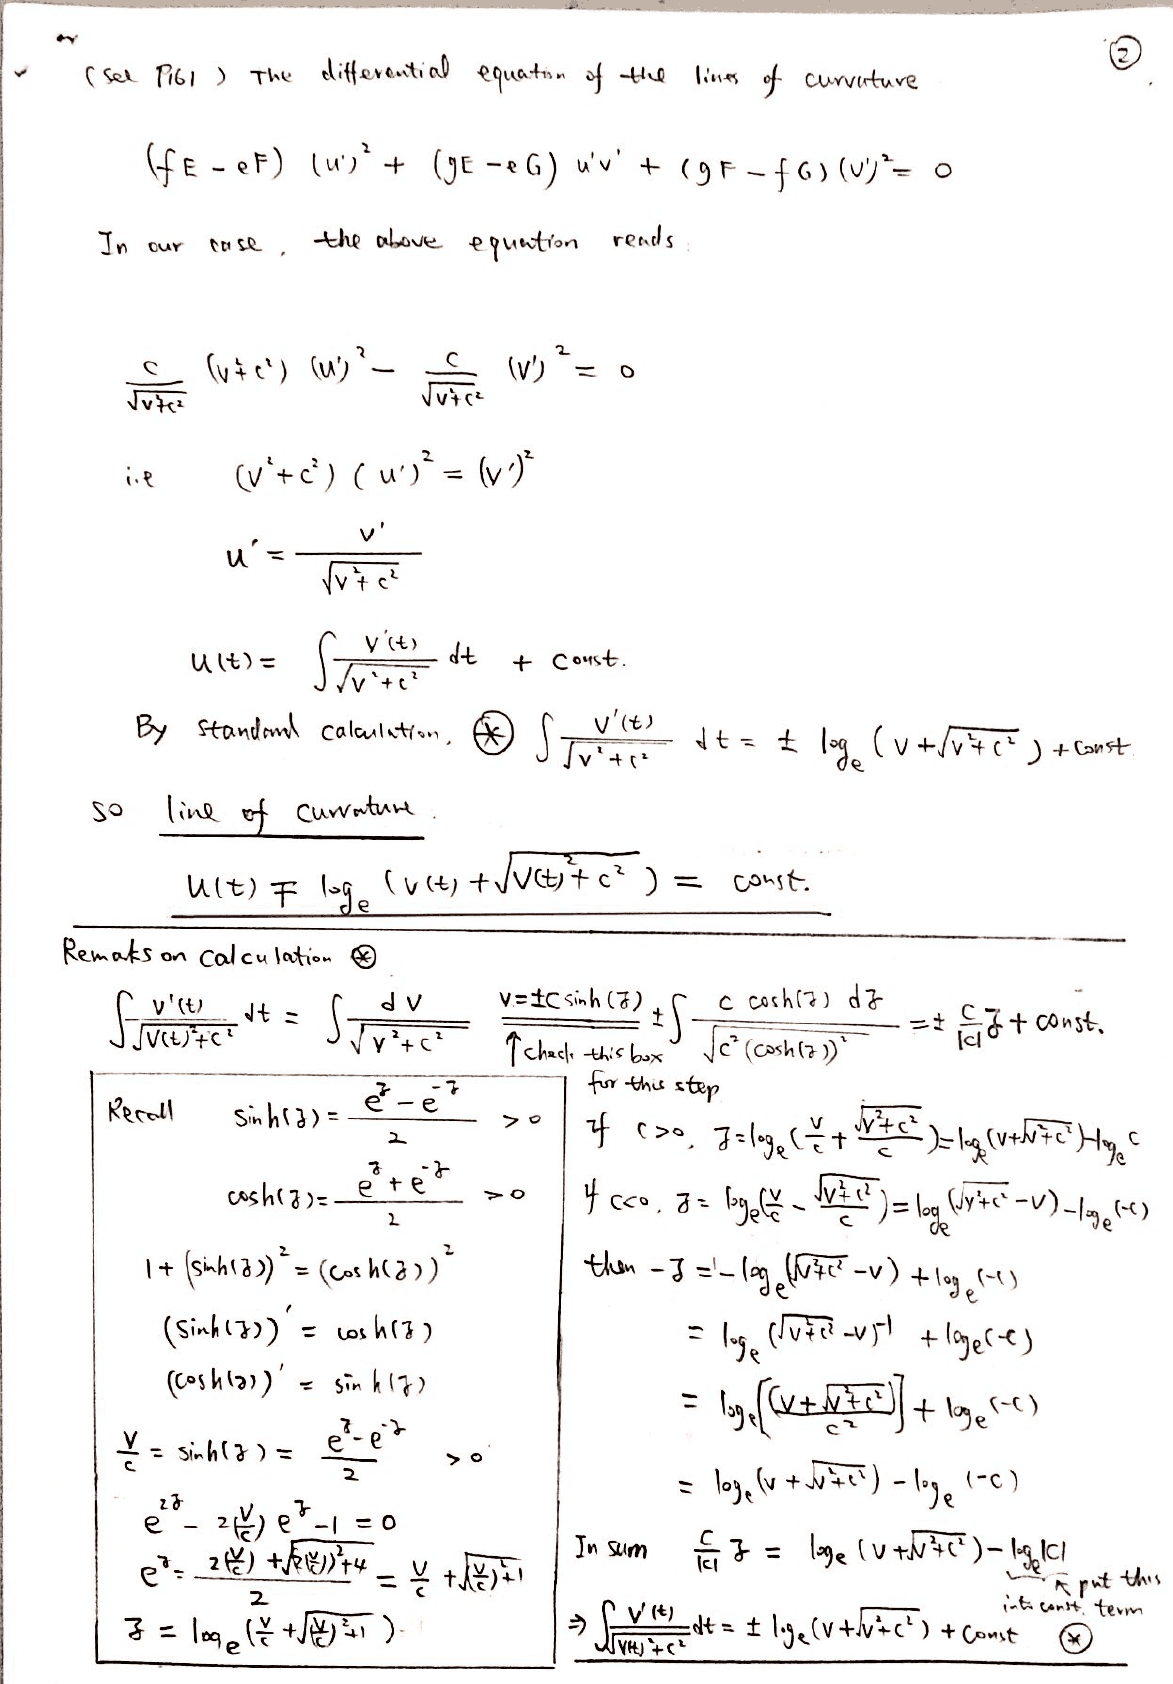 ②
(see P161) The differential equation of the lines of curvature
(fE - eF) (u')² + (gE - eG) u'v' + (gF - fG)(v')² = 0
In our case, the above equation reads
c/√(v²+c²) (v²+c²) (u')² - c/√(v²+c²) (v')² = 0
i.e (v²+c²) (u')² = (v')²
u' = v'/√(v²+c²)
u(t) = ∫ v'(t)/√(v²+c²) dt + const.
By standard calculation, ⊛ ∫ v'(t)/√(v²+c²) dt = ± logₑ (v+√(v²+c²)) + const
so line of curvature.
u(t) ∓ logₑ (v(t) + √(v(t)²+c²)) = const.
Remaks on calculation ⊛
∫ v'(t)/√(v(t)²+c²) dt = ∫ dv/√(v²+c²) v=±c sinh(z) ± ∫ c cosh(z) dz/√(c²(cosh(z))²) = ± c/|c| z + const.
↑ check this box
for this step
Recall sinh(z) = (e^z - e^-z)/2 > 0
cosh(z) = (e^z + e^-z)/2 > 0
1 + (sinh(z))² = (cosh(z))²
(sinh(z))' = cosh(z)
(cosh(z))' = sinh(z)
v/c = sinh(z) = (e^z - e^-z)/2 > 0
e^2z - 2(v/c) e^z - 1 = 0
e^z = (2(v/c) + √((2(v/c))²+4))/2 = v/c + √((v/c)²+1)
z = logₑ (v/c + √((v/c)²+1))
if c>0, z = logₑ (v/c + √(v²+c²)/c) = logₑ (v+√(v²+c²)) - logₑ c
if c<0, z = logₑ (v/c - √(v²+c²)/c) = logₑ (√(v²+c²) - v) - logₑ (-c)
then -z = - logₑ (√(v²+c²) - v) + logₑ (-c)
= logₑ (√(v²+c²) - v)⁻¹ + logₑ (-c)
= logₑ [(v+√(v²+c²))/c²] + logₑ (-c)
= logₑ (v + √(v²+c²)) - logₑ (-c)
In sum c/|c| z = logₑ (v+√(v²+c²)) - logₑ |c|
↖ put this
into const. term
⇒ ∫ v'(t)/√(v(t)²+c²) dt = ± logₑ (v+√(v²+c²)) + const ⊛